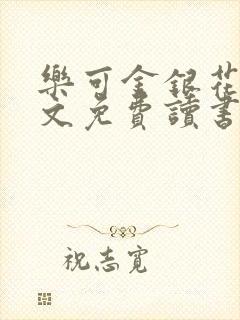 樂可金銀花
文免費讀書
祝志寬